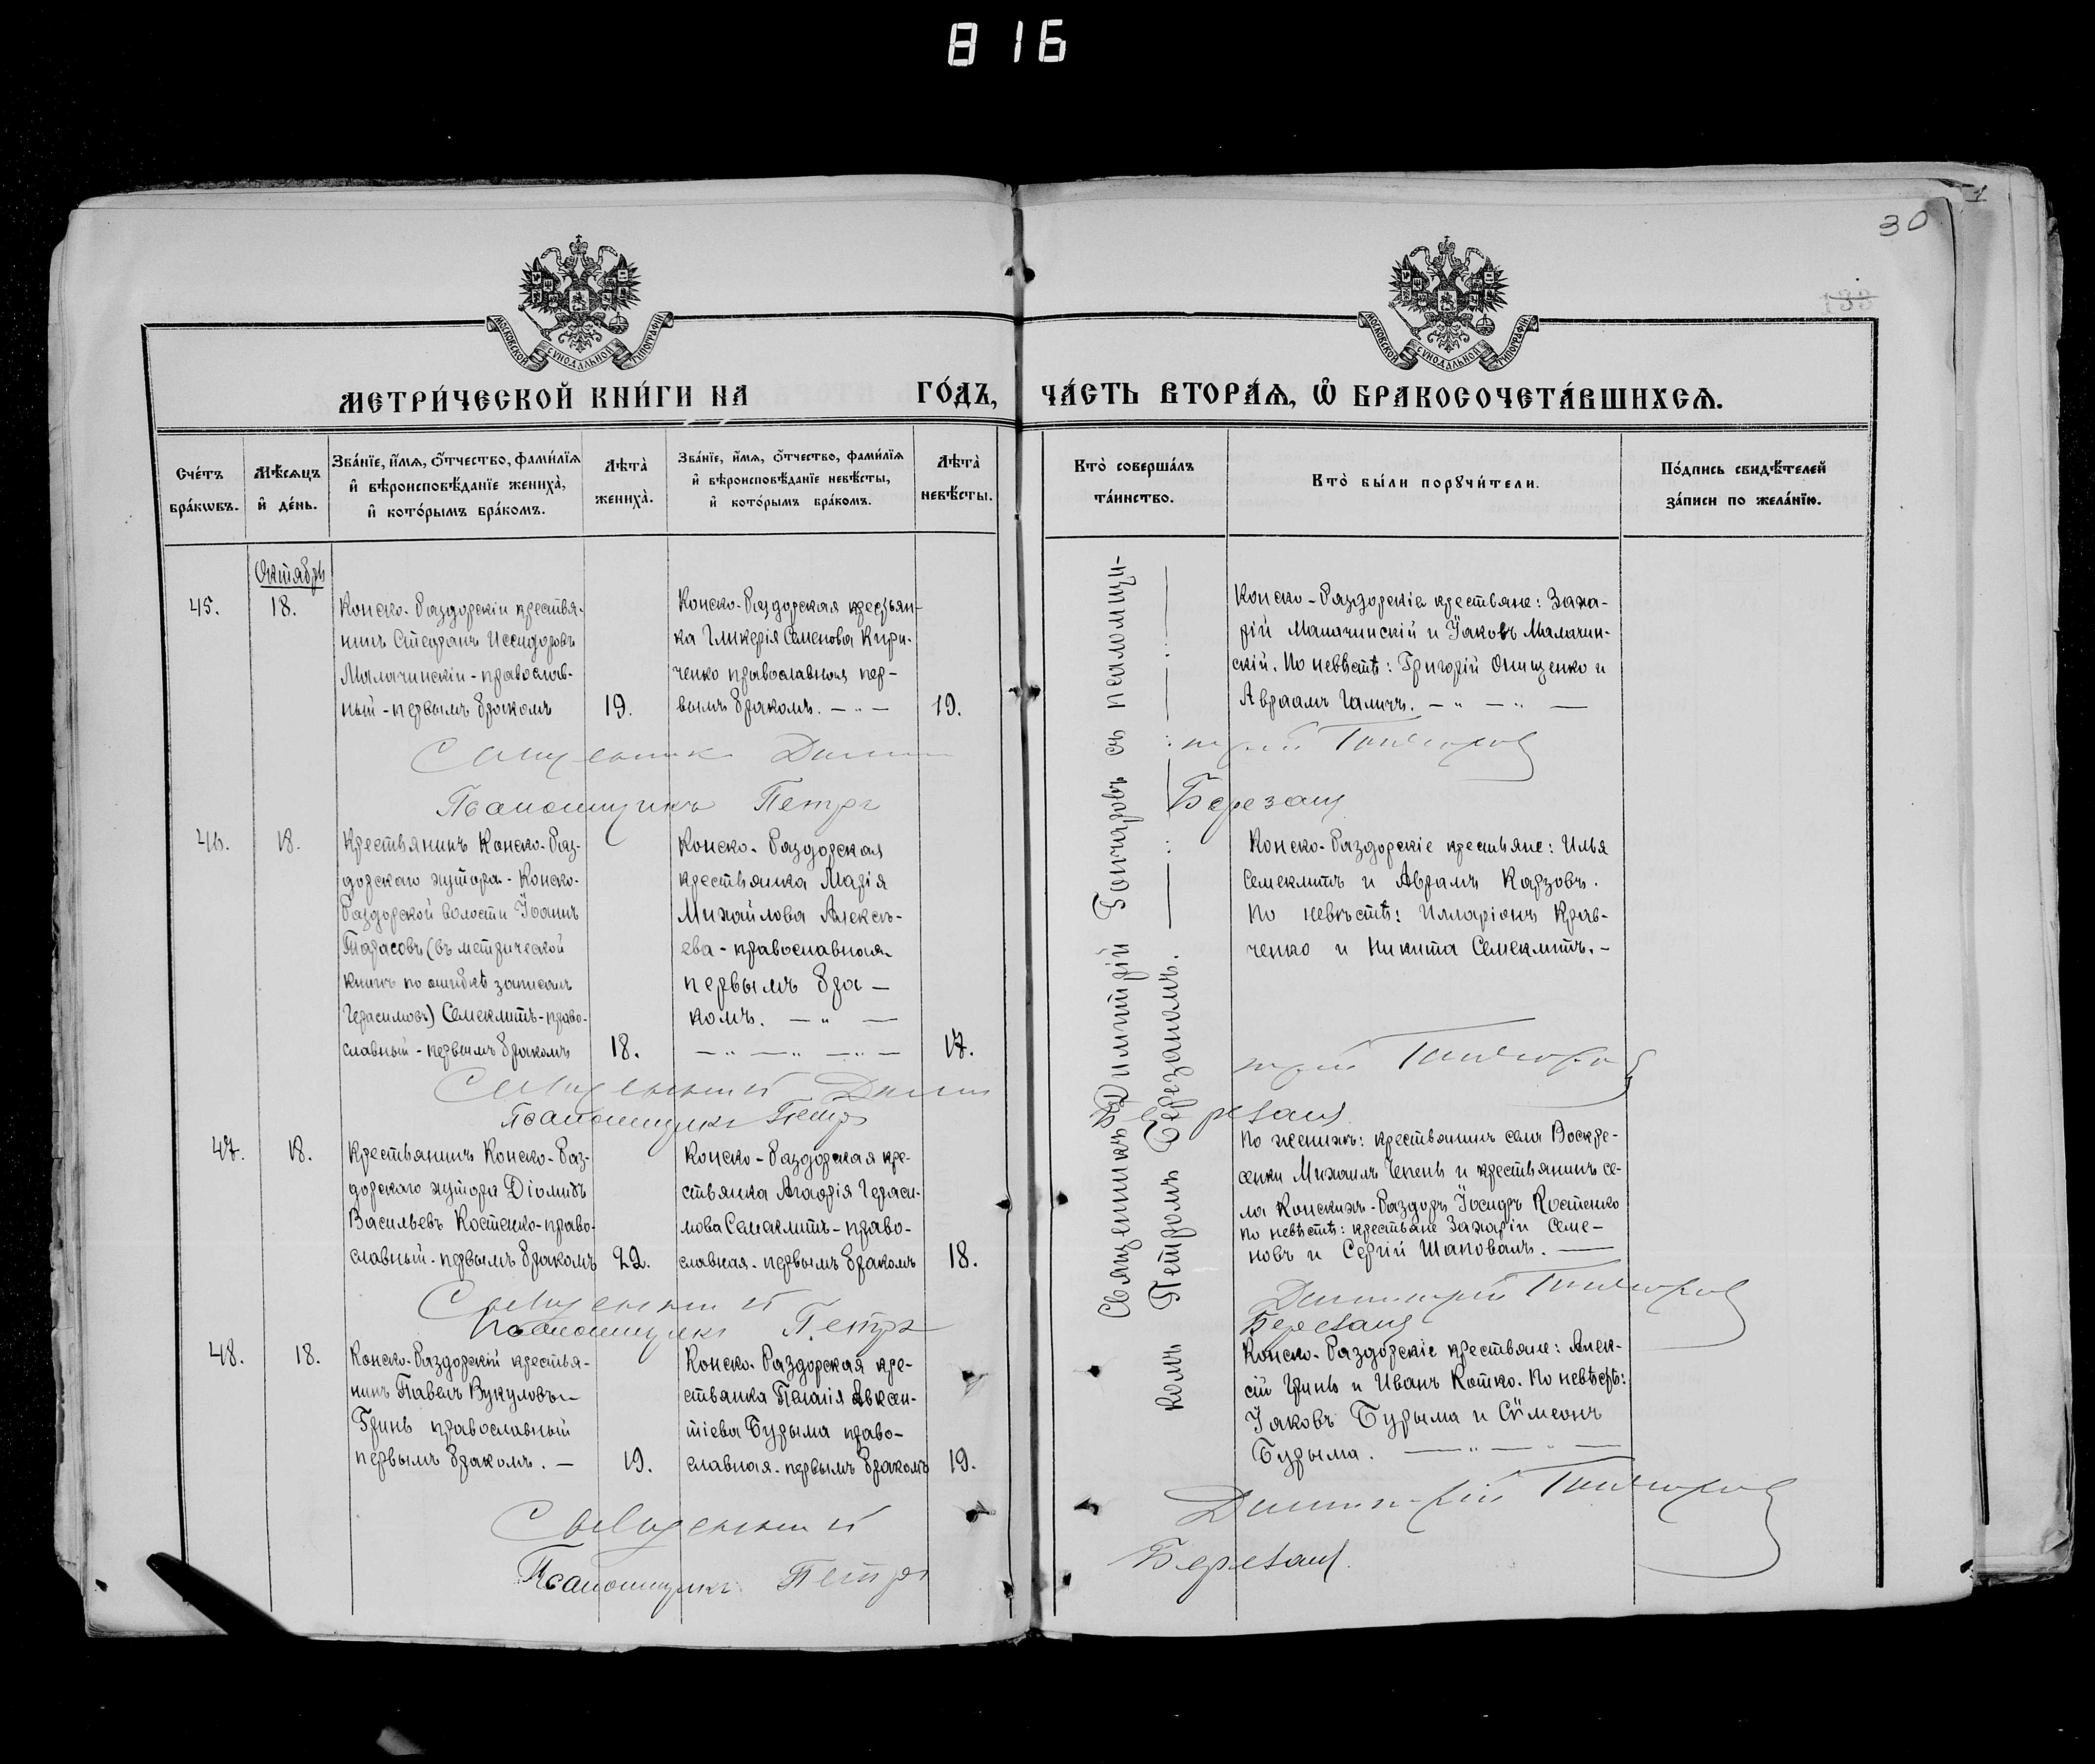 816
30
133
МОСКОВСКОЙ СѴНОДАЛЬНОЙ ТИПОГРАФІИ
МОСКОВСКОЙ СѴНОДАЛЬНОЙ ТИПОГРАФІИ
МЕТРИ́ЧЕСКОЙ КНИ́ГИ НА ГО́ДЪ, ЧА́СТЬ ВТОРА́Ѧ, Ѽ БРАКОСОЧЕТА́ВШИХСѦ.
Сче́тъ
бра́кѡвъ.
Мѣ́сѧцъ
и҆ де́нь.
Зва́нїе, и҆́мѧ, ѻ҆́тчество, фами́лїѧ
и҆ вѣроисповѣ́данїе жениха̀,
и҆ кото́рымъ бра́комъ.
Лѣта̀
жениха̀.
Зва́нїе, и҆́мѧ, ѻ҆́тчество, фами́лїѧ
и҆ вѣроисповѣ́данїе невѣ́сты,
и҆ кото́рымъ бра́комъ.
Лѣта̀
невѣ́сты.
Кто̀ соверша́лъ
та́инство.
Кто̀ бы́ли порꙋчи́тели.
По́дпись свидѣ́телей
за́писи по жела́нїю.
Октябрь
45.
18.
Конско-Раздорскій крестья-
нинъ Стефанъ Исидоровъ
Малачинскій - православ-
ный - первымъ бракомъ
19.
Конско-Раздорская крестьян-
ка Гликерія Семенова Кири-
ченко православная пер-
вымъ бракомъ. — „ —
19.
Священникъ Димитрій Гончаровъ съ псаломщи-
комъ Петромъ Березаномъ.
Конско-Раздорскіе крестьяне: Заха-
рій Малачинскій и Іаковъ Малачин-
скій. По невѣстѣ: Григорій Онищенко и
Авраамъ Галичъ. — „ — „ —
Священникъ Димитрій Гончаровъ
Псаломщикъ Петръ Березанъ
46.
18.
Крестьянинъ Конско-Раз-
дорскаго хутора - Конско-
Раздорской волости Іоаннъ
Тарасовъ (въ метрической
книгѣ по ошибкѣ записанъ
Герасимовъ) Семеклитъ - право-
славный - первымъ бракомъ
18.
Конско-Раздорская
крестьянка Марія
Михайлова Алексѣ-
ева - православная
первымъ бра-
комъ. — „ —
— „ — „ — „ —
17.
Конско-Раздорскіе крестьяне: Илья
Семеклитъ и Аврамъ Карзовъ.
По невѣстѣ: Илларіонъ Крав-
ченко и Никита Семеклитъ. -
Священникъ Димитрій Гончаровъ
Псаломщикъ Петръ Березанъ
47.
18.
Крестьянинъ Конско-Раз-
дорскаго хутора Діомидъ
Васильевъ Костенко - право-
славный - первымъ бракомъ
22.
Конско-Раздорская кре-
стьянка Агафія Гераси-
мова Семеклитъ - право-
славная - первымъ бракомъ
18.
По женихѣ: крестьянинъ села Воскре-
сенки Михаилъ Чепень и крестьянинъ се-
ла Конскихъ-Раздоръ Іосифъ Костенко
По невѣстѣ: крестьяне Захарій Семе-
новъ и Сергій Шаповалъ. —
Священникъ Димитрій Гончаровъ
Псаломщикъ Петръ Березанъ
48.
18.
Конско-Раздорскій крестья-
нинъ Павелъ Вукуловъ -
Гринь православный
первымъ бракомъ. —
19.
Конско-Раздорская кре-
стьянка Пелагія Авксен-
тіева Бурыма право-
славная - первымъ бракомъ
19.
Конско-Раздорскіе крестьяне: Алек-
сій Гринь и Иванъ Котко. По невѣстѣ:
Іаковъ Бурыма и Сѵмеонъ
Бурыма. — „ — „ —
Священникъ Димитрій Гончаровъ
Псаломщикъ Петръ Березанъ.